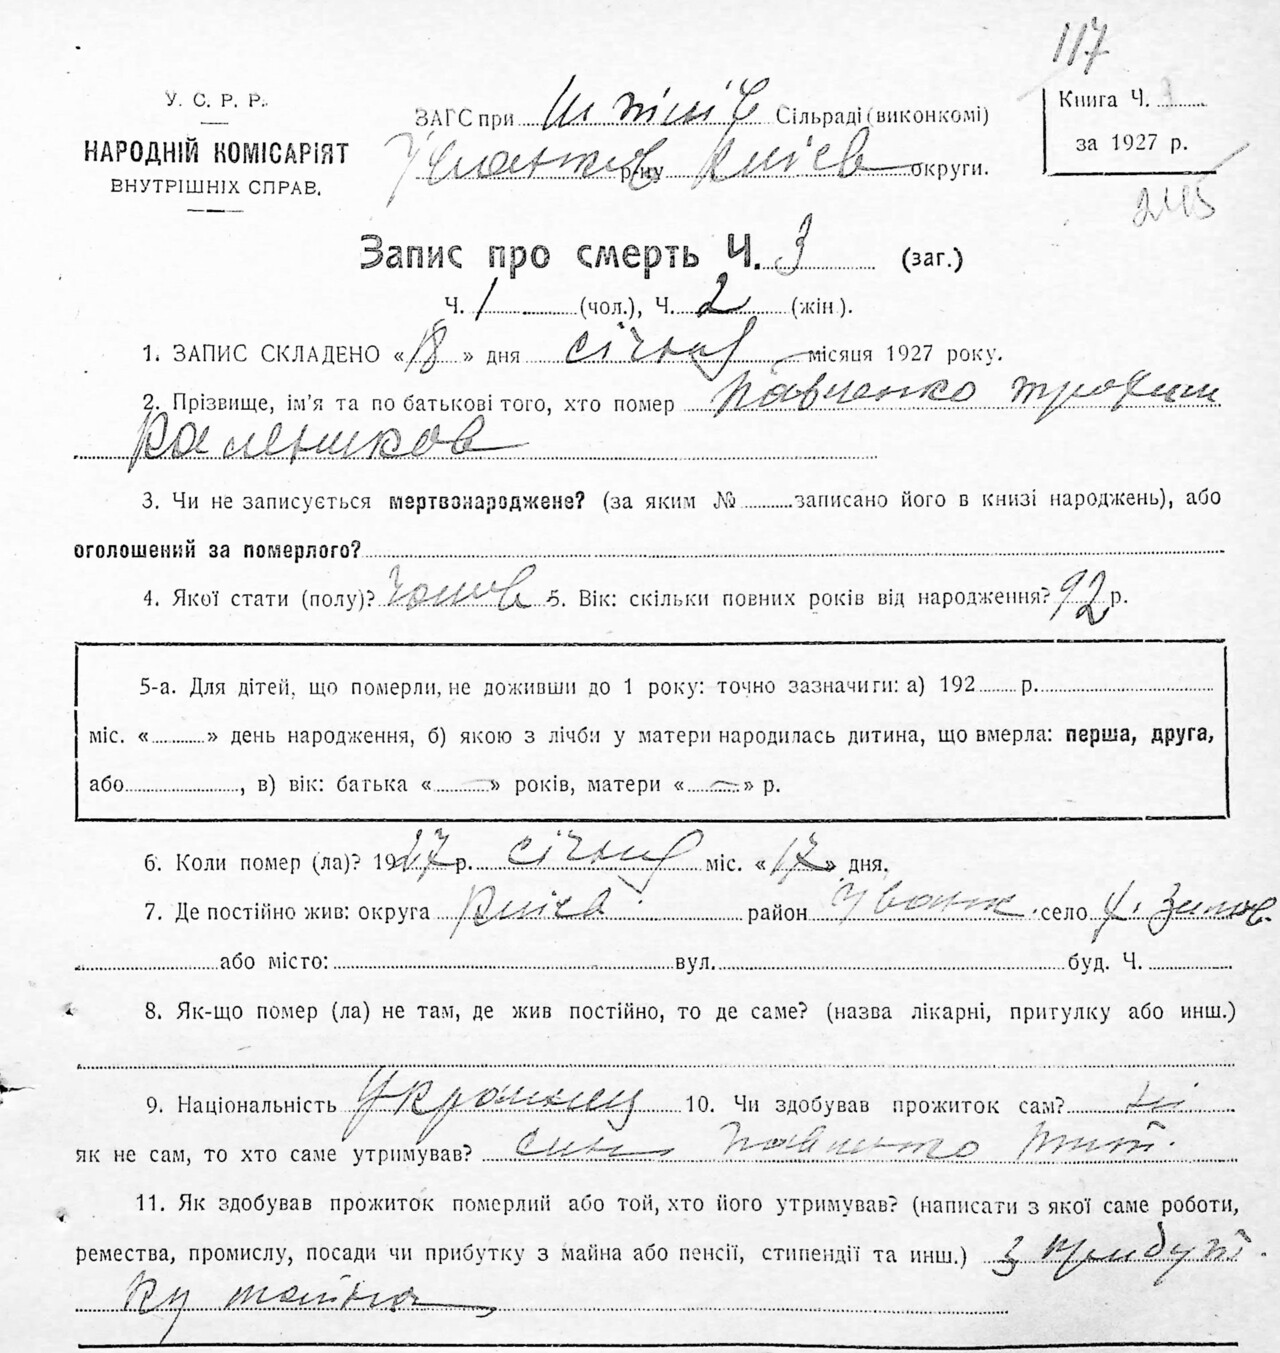 117
У. С. Р. Р.
НАРОДНІЙ КОМІСАРІЯТ
ВНУТРІШНІХ СПРАВ.
ЗАГС при Сільраді (виконкомі)
р/ну Київ округи.
Книга Ч.
за 1927 р.
245
Запис про смерть Ч. 3 (заг.)
Ч. 1 (чол.), Ч. 2 (жін).
1. ЗАПИС СКЛАДЕНО «18» дня січня місяця 1927 року.
2. Прізвище, ім'я та по батькові того, хто помер Павченко Трохим
Калеників
3. Чи не записується мертвонароджене? (за яким № записано його в книзі народжень), або
оголошений за померлого?
4. Якої стати (полу)? Чолов 5. Вік: скільки повних років від народження? 92 р.
5-а. Для дітей, що померли, не доживши до 1 року: точно зазначити: а) 192 р.
міс. « » день народження, б) якою з лічби у матери народилась дитина, що вмерла: перша, друга,
або , в) вік: батька «—» років, матери «—» р.
6. Коли помер (ла)? 1927 р. січня міс. «17» дня.
7. Де постійно жив: округа Київ район Іванк. село х.
або місто: вул. буд. Ч.
8. Як-що помер (ла) не там, де жив постійно, то де саме? (назва лікарні, притулку або инш.)
9. Національність Українец 10. Чи здобував прожиток сам? ні
як не сам, то хто саме утримував? син Павченко
11. Як здобував прожиток померлий або той, хто його утримував? (написати з якої саме роботи,
ремества, промислу, посади чи прибутку з майна або пенсії, стипендії та инш.) з прибут
ку майна